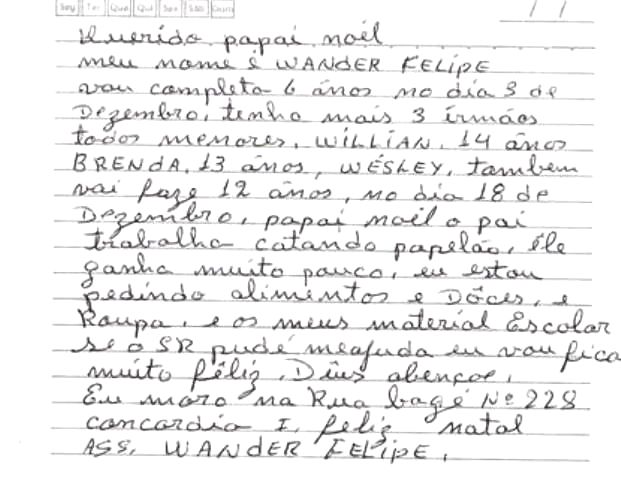 Seg Ter Qua Qui Sex Sáb Dom / /
Querido papai noél
meu nome é WANdER FELipE
vou completa 6 ânos no dia 3 de
Dezembro, tenho mais 3 irmãos
todos menores, WiLLiAN, 14 ânos
BRENdA, 13 ânos, WÉSLEY, tambem
vai faze 12 ânos, no dia 18 de
Dezembro, papai noél o pai
trabalha catando papelão, êle
ganha muito pouco, eu estou
pedindo alimentos e Dôces, e
Roupa, e os meus material Escolar
se o SR pudé meajuda eu vou fica
muito féliz, Dêus abençoe,
Eu moro na Rua bagé Nº 228
concordia I, feliz natal
ASS, WANdER FELipE,